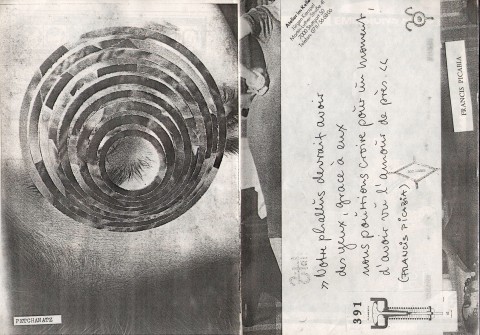 PETCHANATZ
» Notre phallus devrait avoir
des yeux, grâce à eux
nous pourrions croire pour un moment,
d'avoir vu l'amour de près. «
(FRANCIS PICABIA)
391
FRANCIS PICABIA